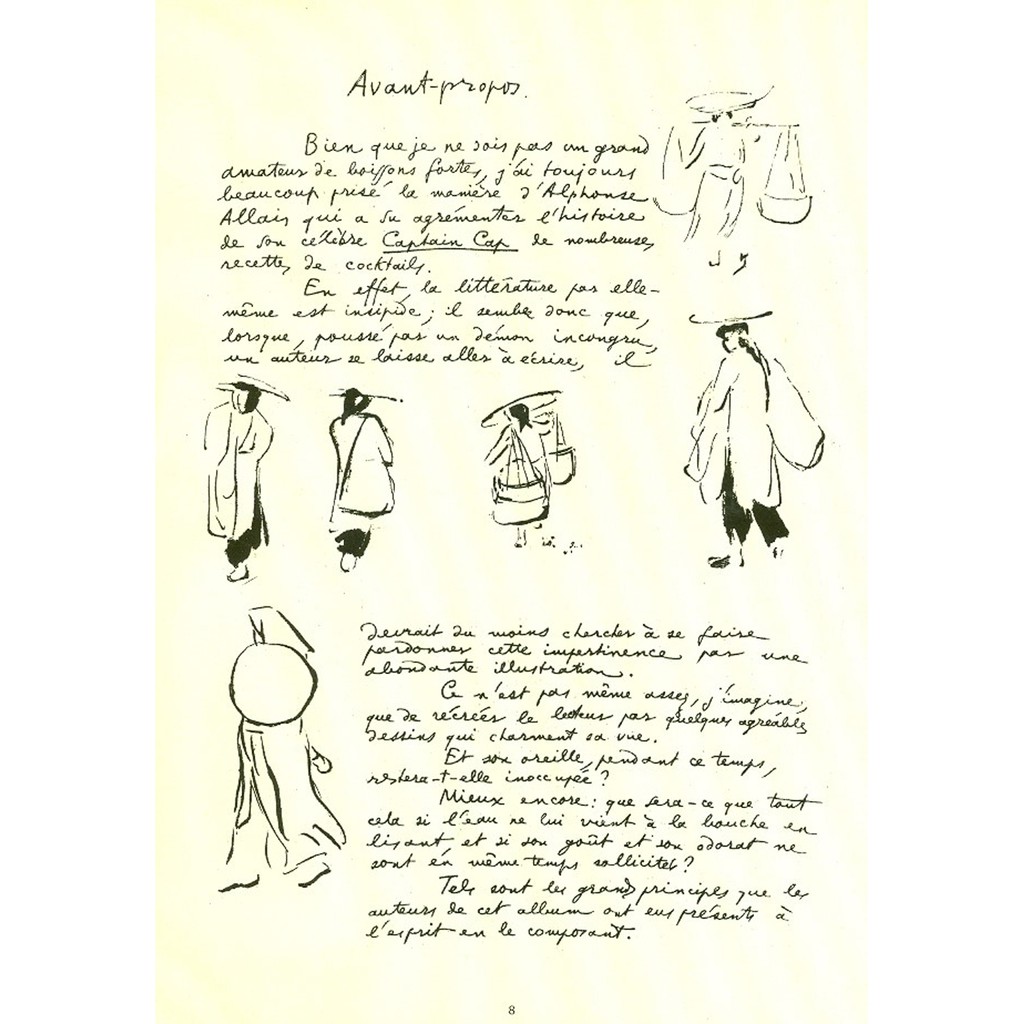 Avant-propos.
Bien que je ne sois pas un grand
amateur de boissons fortes, j'ai toujours
beaucoup prisé la manière d'Alphonse
Allais qui a su agrémenter l'histoire
de son célèbre Captain Cap de nombreuses
recettes de cocktails.
En effet, la littérature par elle-
même est insipide; il semble donc que,
lorsque, poussé par un démon incongru,
un auteur se laisse aller à écrire, il
devrait du moins chercher à se faire
pardonner cette impertinence par une
abondante illustration.
Ce n'est pas même assez, j'imagine,
que de récréer le lecteur par quelques agréables
dessins qui charment sa vue.
Et son oreille, pendant ce temps,
restera-t-elle inoccupée?
Mieux encore: que sera-ce que tout
cela si l'eau ne lui vient à la bouche en
lisant, et si son goût et son odorat ne
sont en même temps sollicités?
Tels sont les grands principes que les
auteurs de cet album ont eus présents à
l'esprit en le composant.
8